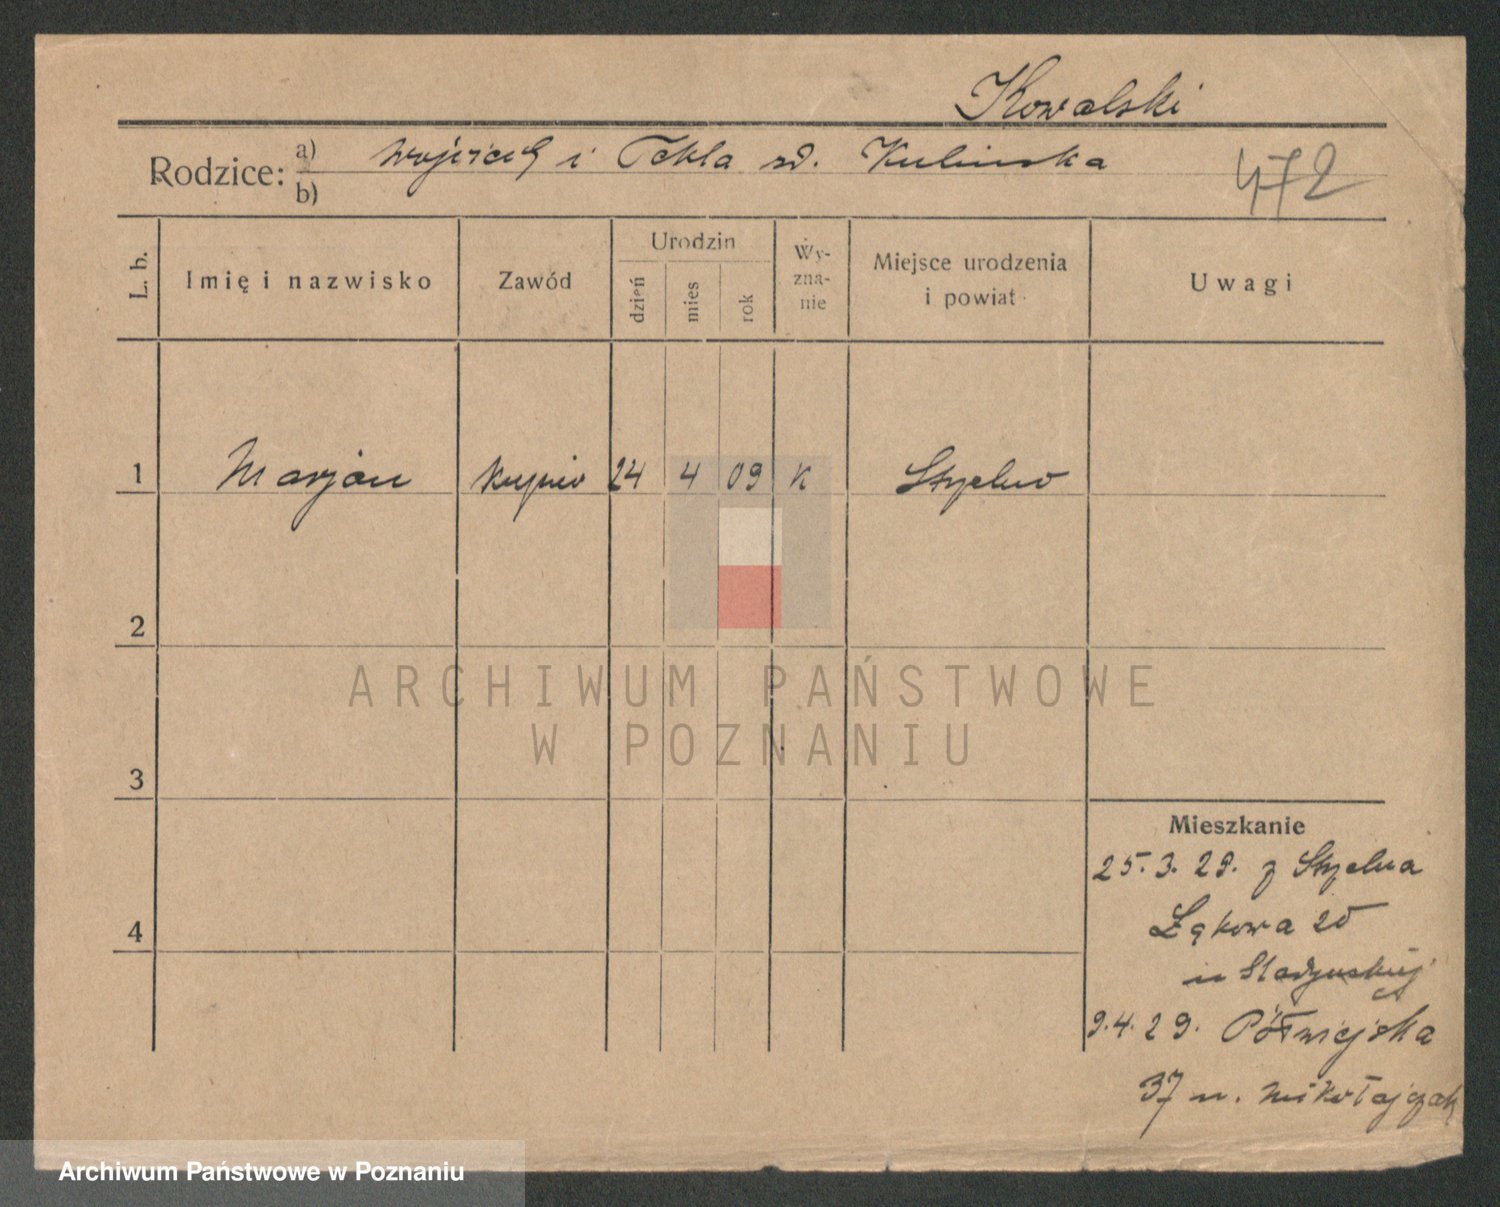 Kowalski
Rodzice: a) Wojciech i Tekla zd. Kulinska
b)
472
L. b.
Imię i nazwisko
Zawód
Urodzin
dzień
mies
rok
Wy-
zna-
nie
Miejsce urodzenia
i powiat
Uwagi
1 Marjan kupiec 24 4 09 K Strzelno
2
ARCHIWUM PAŃSTWOWE
W POZNANIU
3
4
Mieszkanie
25.3.29. z Strzelna
Łąkowa 20
u
9.4.29. Półwiejska
37 u. Mikołajczak
Archiwum Państwowe w Poznaniu